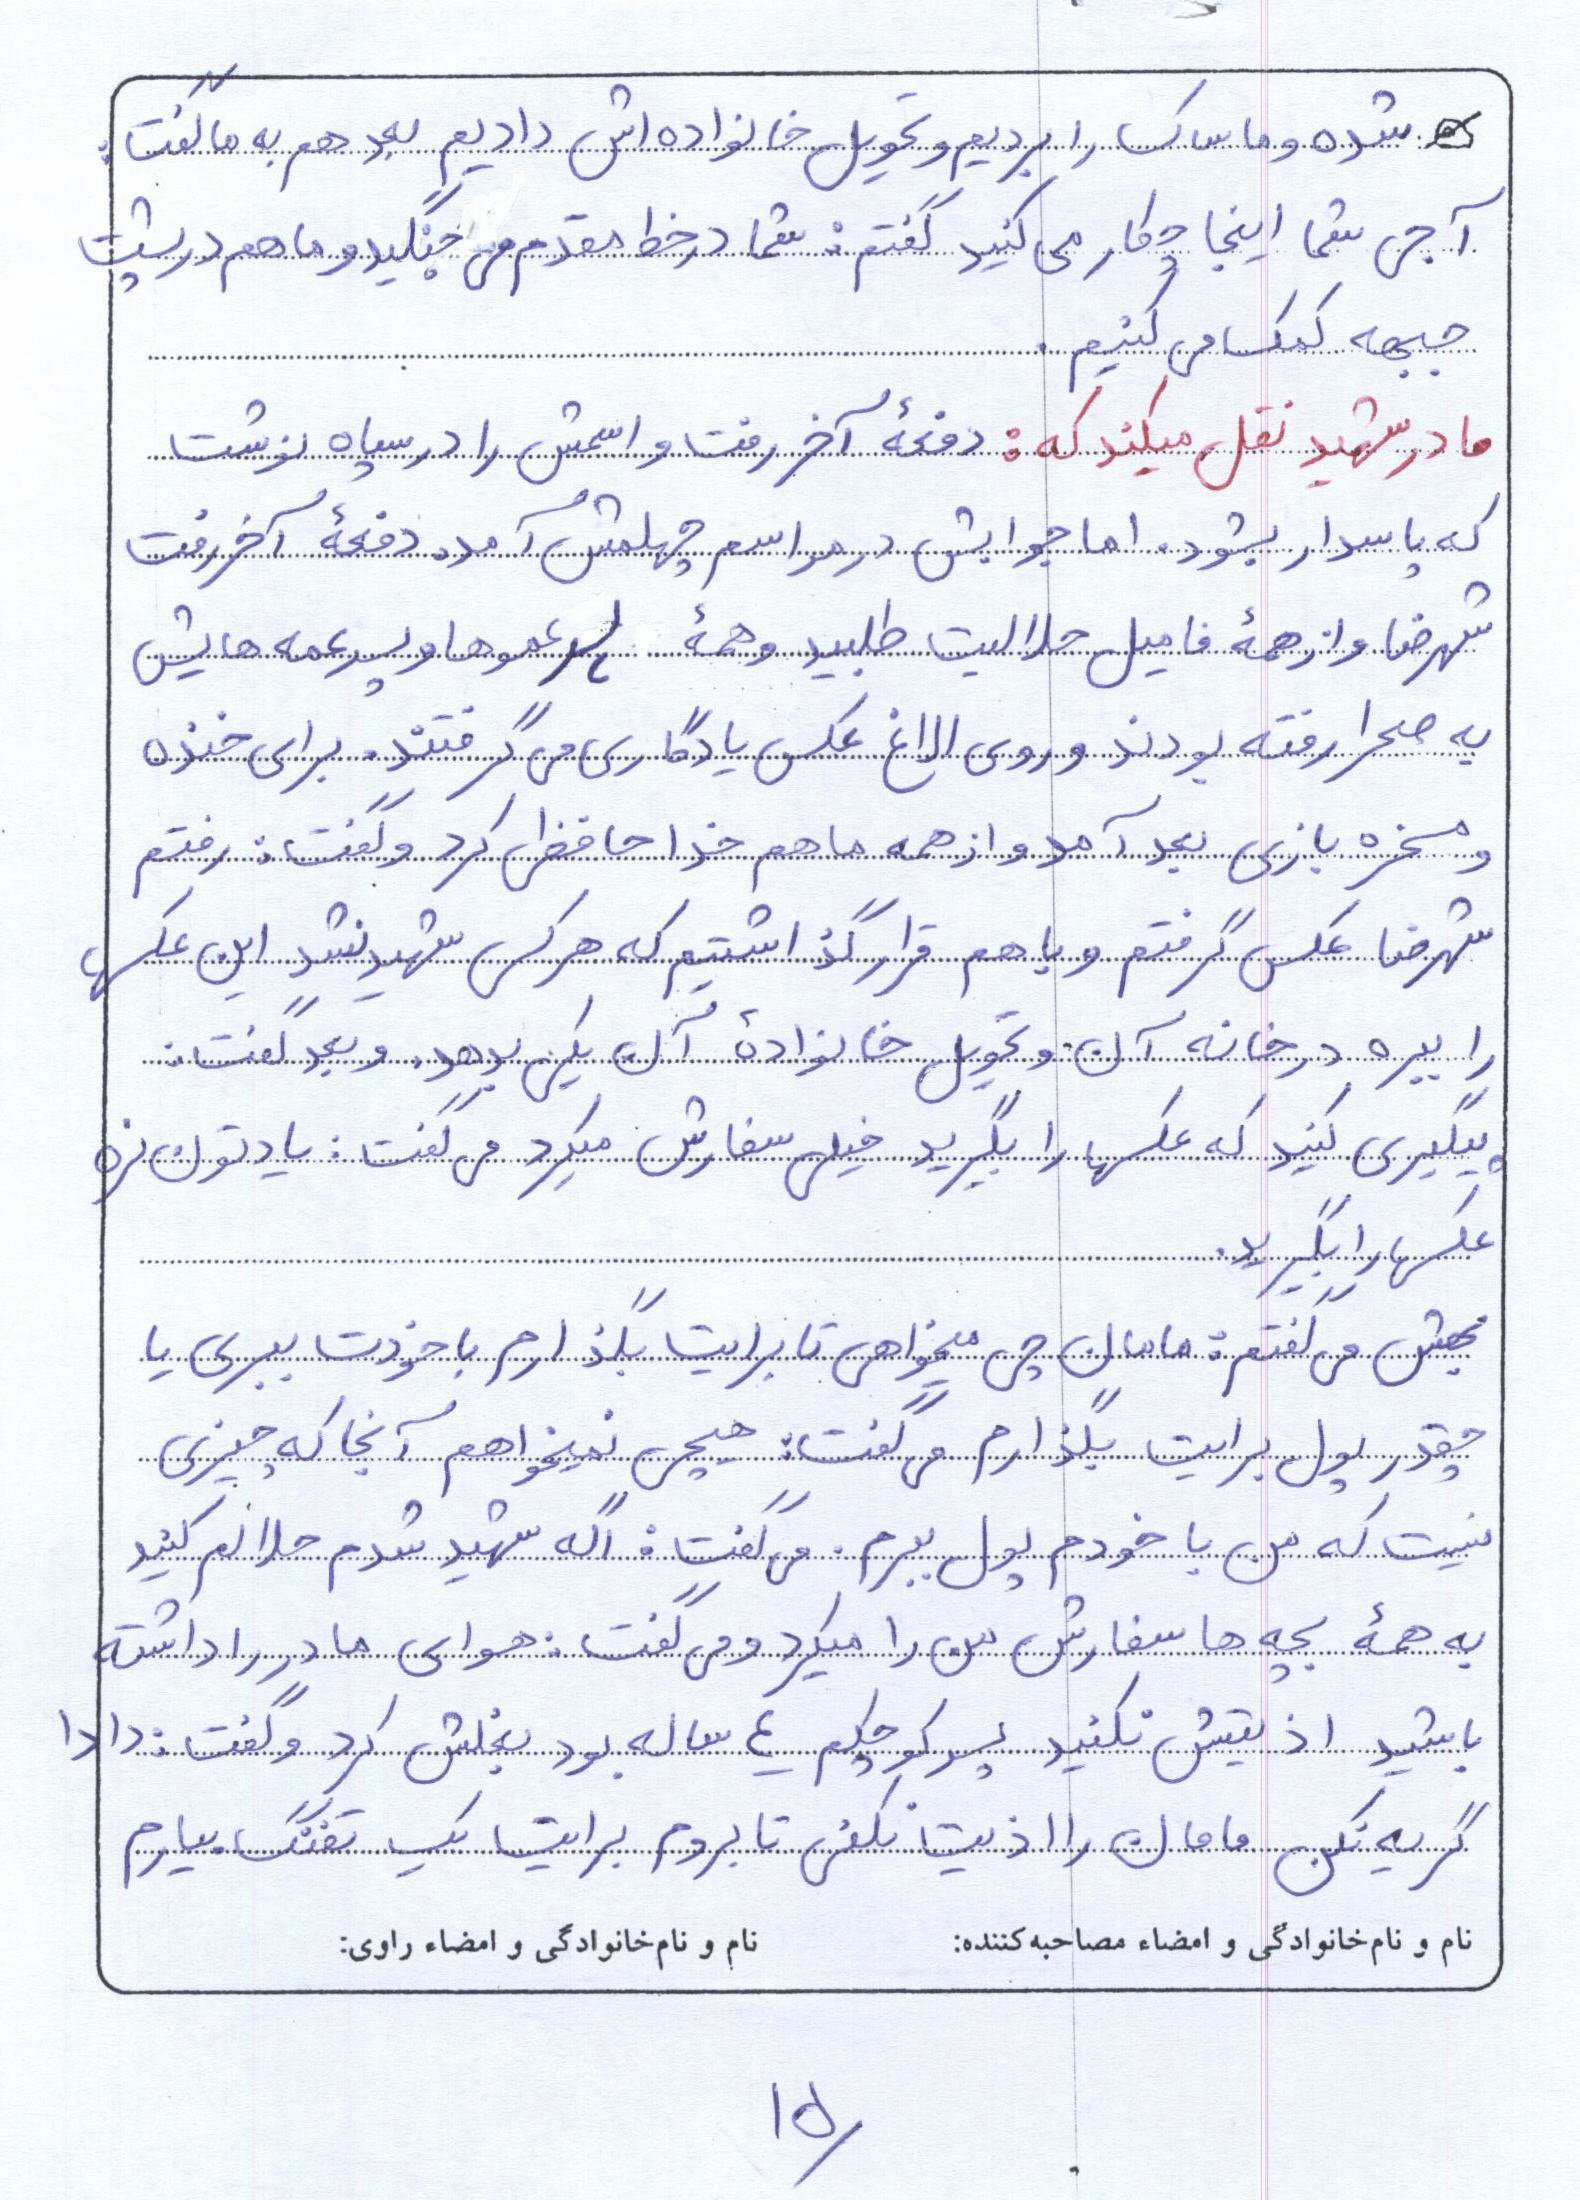 شده و ما ساک را بردیم و تحویل خانواده اش دادیم بعد هم به ما گفت:
آجی شما اینجا چکار می کنید گفتم: شما در خط مقدم می جنگلید و ما هم در پشت
جبهه کمک می کنیم.
مادر شهید نقل میکند که: دفعهٔ آخر رفت و اسمش را در سپاه نوشت
که پاسدار بشود. اما جوابش در مراسم چهلمش آمد. دفعهٔ آخر رفت
شهرضا و از همهٔ فامیل حلالیت طلبید و همهٔ پسرعموها و پسرعمه هایش
به صحرا رفته بودند و روی الاغ عکس یادگاری می گرفتند. برای خنده
و مسخره بازی بعد آمد و از همه ما هم خداحافظی کرد و گفت: رفتم
شهرضا عکس گرفتم و با هم قرار گذاشتیم که هرکس شهید نشد این عکسها
را ببره در خانه آن و تحویل خانوادهٔ آن یکی بدهد. و بعد گفت:
پیگیری کنید که عکسها را بگیرید خیلی سفارش میکرد می گفت: یادتون نره
عکسها را بگیرید.
بهش می گفتم: مامان چی میخواهی تا برایت بگذارم با خودت ببری یا
چقدر پول برایت بگذارم می گفت: هیچی نمیخواهم آنجا که چیزی
نیست که من با خودم پول ببرم. می گفت: اگه شهید شدم حلالم کنید
به همهٔ بچه ها سفارش من را میکرد و می گفت: هوای مادر را داشته
باشید اذیتش نکنید پسر کوچکم ٤ ساله بود بغلش کرد و گفت: دادا
گریه نکن مامان را اذیت نکنی تا بروم برایت یک تفنگ بیارم
نام و نام خانوادگی و امضاء مصاحبه کننده: نام و نام خانوادگی و امضاء راوی:
۱۵